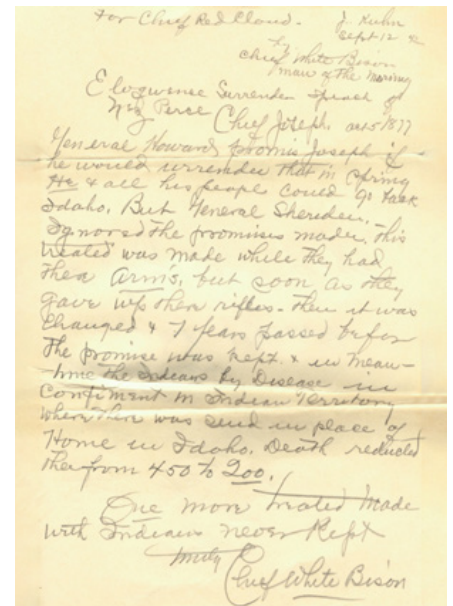 For Chief Red Cloud. J. Kuhn
Sept 12 42
by
Chief White Bison
man of the
Eloquence Surrender Speach of
Nez Perce Chief Joseph. Oct 5 1877
General Howard promis Joseph if
he would surrender that in Spring
He & all his people could go back
Idaho. But General Sheriden.
Ignored the promises made. This
treated was made while they had
their Arms, but soon as they
gave up their rifles - then it was
Changed & 7 years passed befor
the promise was kept & in mean-
time the Indians by Disease in
Confiment in Indian Territory
where they was send in place of
Home in Idaho. Death reducted
them from 450 to 200.
One more treated Made
with Indians never Kept
Chief White Bison